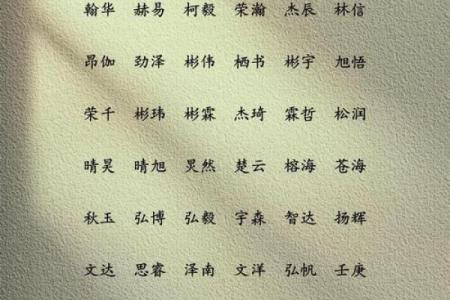 翰华 赫易 柯毅 荣瀚 杰辰 林信
昂伽 劲泽 彬伟 栖书 彬宇 旭悟
荣千 彬玮 彬霖 杰琦 霖哲 松润
晴昊 晴旭 炅然 楚云 榕海 苍海
秋玉 弘博 弘毅 宇森 智达 扬辉
文达 思睿 泽南 文洋 弘帆 壬庚